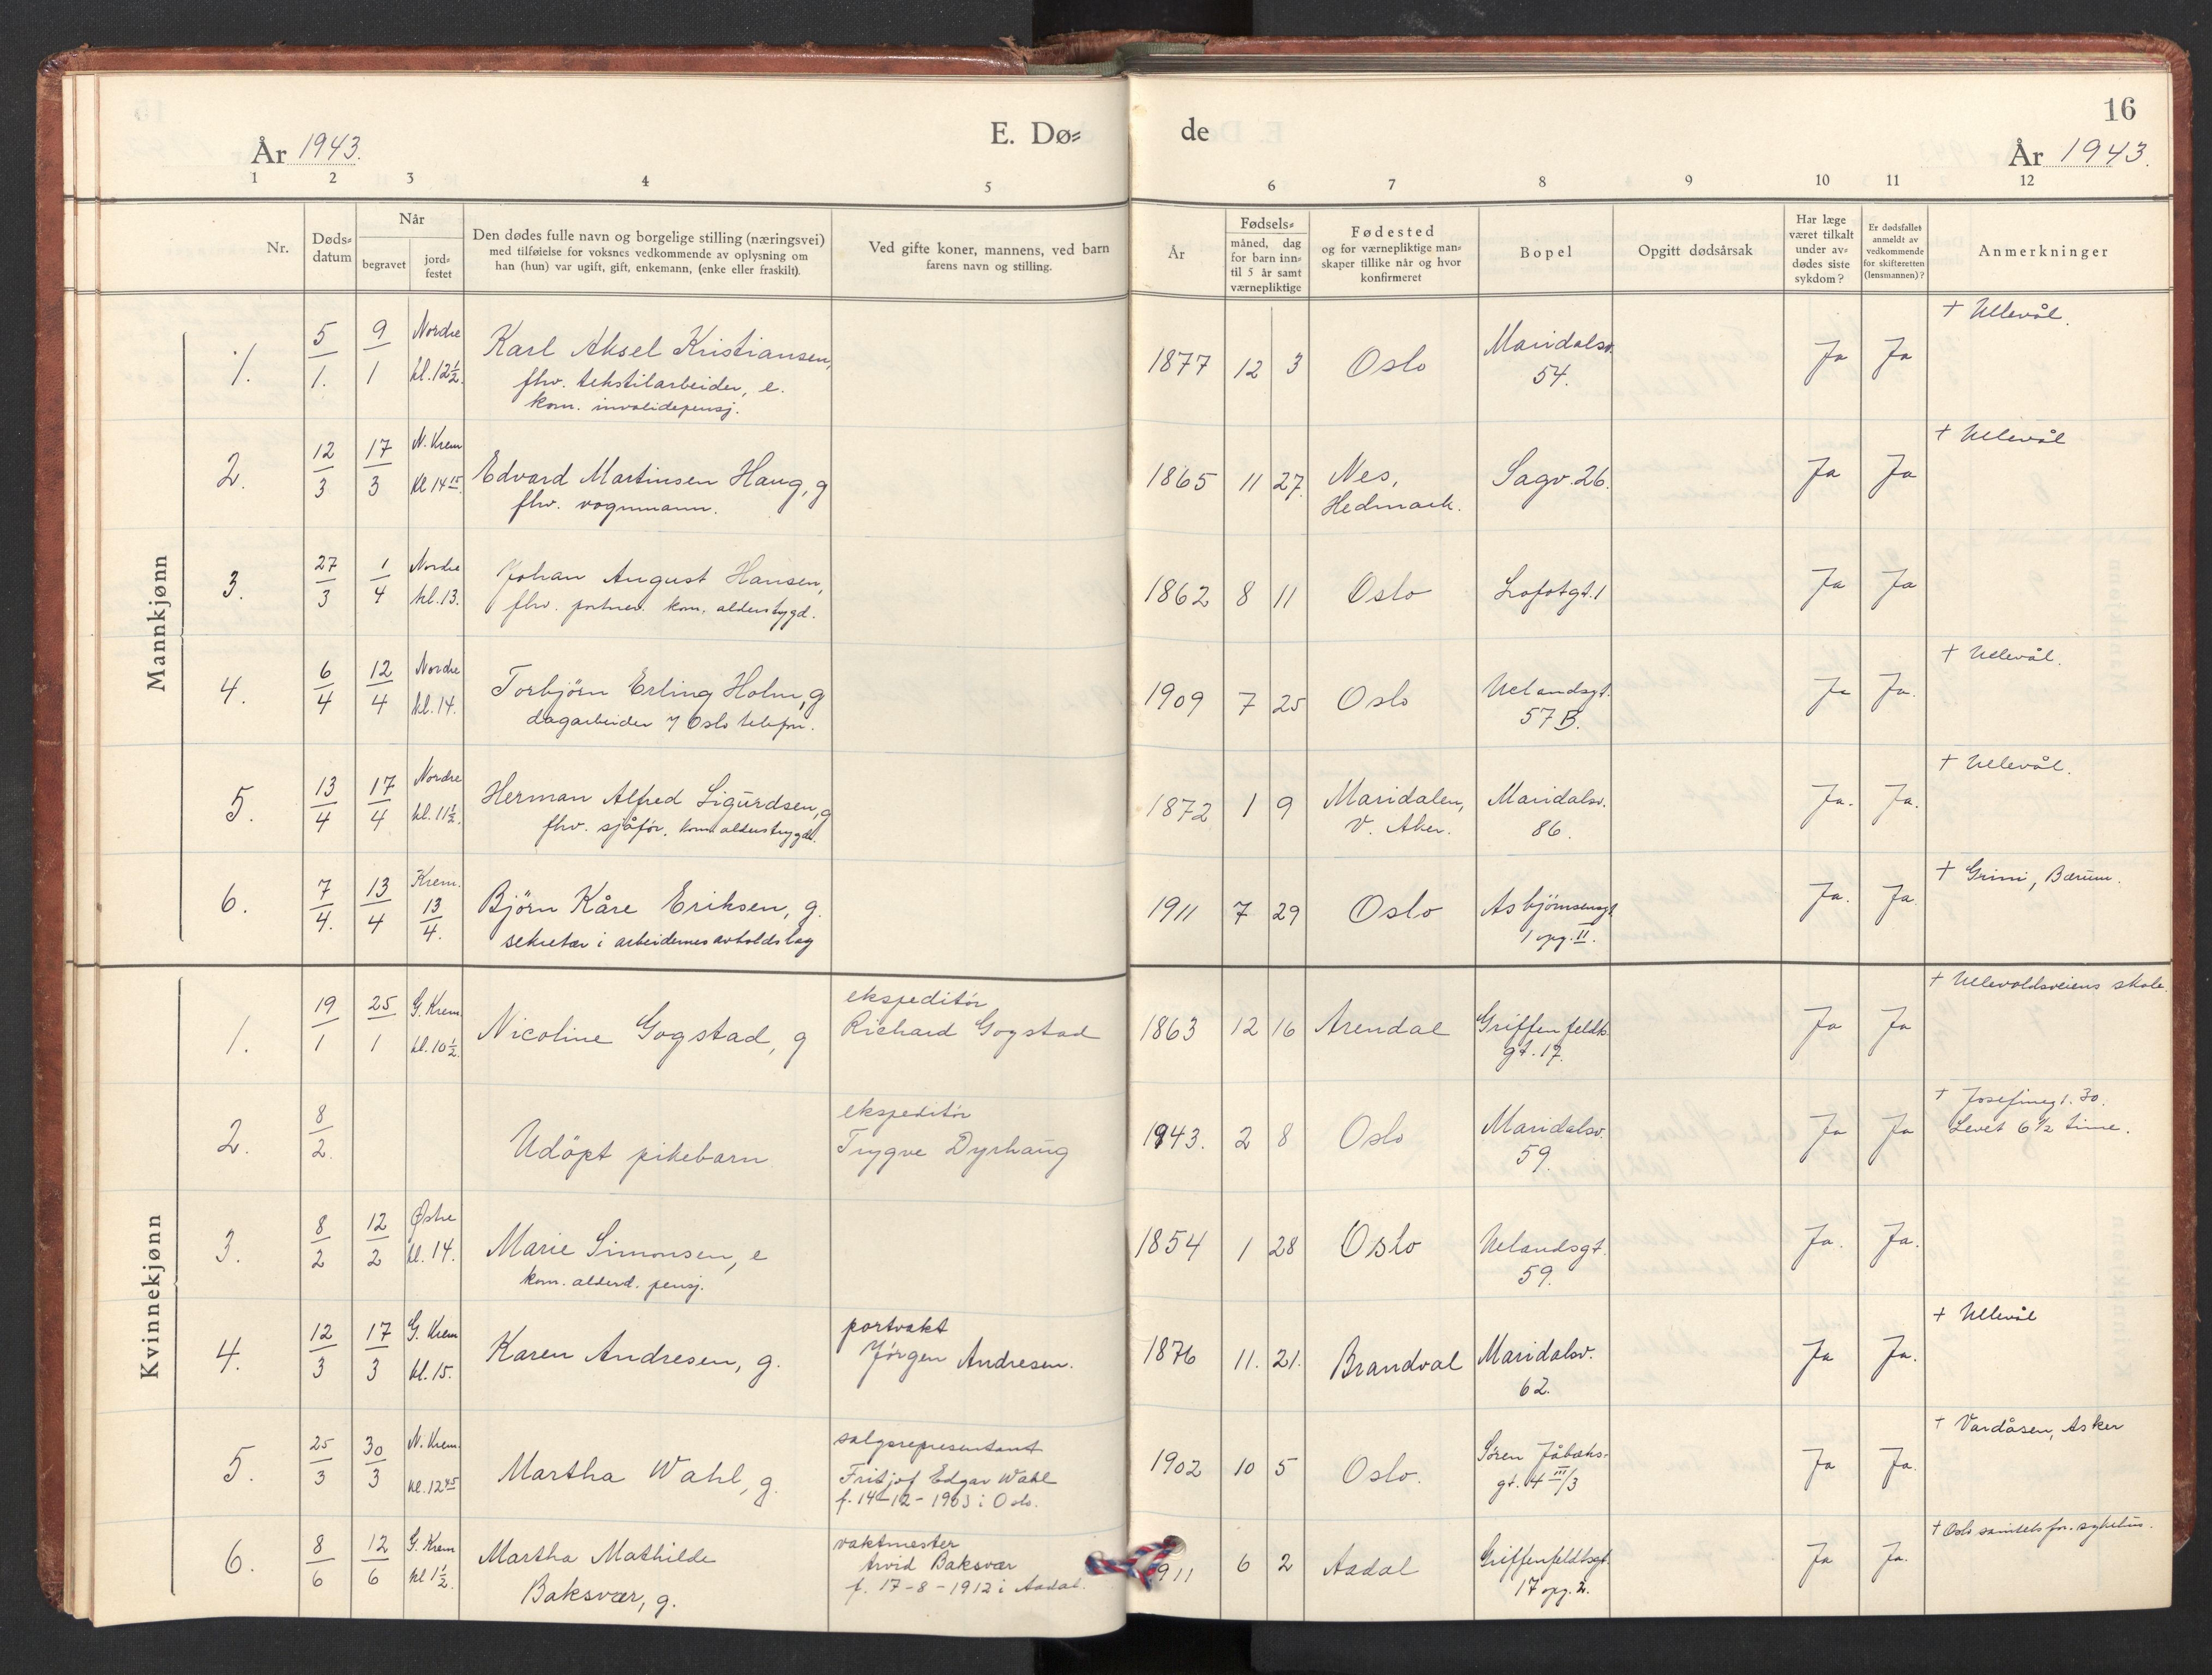 16
År 1943.
E. Dø=
de
År 1943.
1
2
3
4
5
6
7
8
9
10
11
12
Nr.
Døds=
datum
Når
begravet
jord=
festet
Den dødes fulle navn og borgelige stilling (næringsvei)
med tilføielse for voksnes vedkommende av oplysning om
han (hun) var ugift, gift, enkemann, (enke eller fraskilt).
Ved gifte koner, mannens, ved barn
farens navn og stilling.
År
Fødsels=
måned, dag
for barn inn=
til 5 år samt
værnepliktige
Fødested
og for værnepliktige man=
skaper tillike når og hvor
konfirmeret
Bopel
Opgitt dødsårsak
Har læge
været tilkalt
under av=
dødes siste
sykdom?
Er dødsfallet
anmeldt av
vedkommende
for skifteretten
(lensmannen)?
Anmerkninger
Mannkjønn
1. 5/1. 9/1 Nordre kl. 12½.
Karl Aksel Kristiansen,
fhv. tekstilarbeider, e.
kom. invalidepensj.
1877 12 3 Oslo
Maridalsv.
54.
Ja Ja
+ Ullevål.
2. 12/3 17/3 N. Krem kl 14 15.
Edvard Martinsen Haug, g
fhv. vognmann.
1865 11 27.
Nes,
Hedmark.
Sagv. 26.
Ja Ja
+ Ullevål
3. 27/3 1/4 Nordre kl. 13.
Johan August Hansen,
fhv. portner. kom. alderstrygd.
1862 8 11 Oslo
Lofotgt. 1
Ja Ja
4. 6/4 12/4 Nordre kl. 14.
Torbjörn Erling Holm, g
dagarbeider v/ Oslo telefon.
1909 7 25 Oslo
Uelandsgt.
57 B.
Ja Ja.
+ Ullevål.
5. 13/4 17/4 Nordre kl. 11½.
Herman Alfred Sigurdsen, g
fhv. sjåför. kom. alderstrygde.
1872 1 9
Maridalen,
V. Aker.
Maridalsv.
86.
Ja. Ja.
+ Ullevål.
6. 7/4. 13/4 Krem. 13/4.
Björn Kåre Eriksen, g.
sekretær i arbeidernes avholdslag
1911 7 29 Oslo
Asbjörnsensgt
1 opg. II.
Ja. Ja.
+ Grini, Bærum.
Kvinnekjønn
1. 19/1 25/1 G. Krem kl. 10½.
Nicoline Gogstad, g
ekspeditör
Richard Gogstad
1863 12 16 Arendal
Griffenfeldts
gt. 17.
Ja Ja
+ Ullevoldsveiens skole.
2. 8/2.
Udöpt pikebarn
ekspeditör
Trygve Dyrhaug
1943. 2 8 Oslo
Maridalsv.
59.
Ja Ja
+ Josefinegt. 30.
Levet 6½ time.
3. 8/2 12/2 Østre kl. 14.
Marie Simonsen, e
kom. alderd. pensj.
1854 1 28 Oslo
Uelandsgt.
59.
Ja. Ja.
4. 12/3 17/3 G. Krem kl. 15.
Karen Andresen, g.
portvakt
Jörgen Andresen.
1876 11. 21. Brandval
Maridalsv.
62.
Ja Ja.
+ Ullevål
5. 25/3 30/3 N. Krem. kl. 12 45
Martha Wahl, g.
salgsrepresentant
Fritjof Edgar Wahl
f. 14-12-1903 i Oslo.
1902 10 5 Oslo.
Sören Jåbæks-
gt. 4 III/3
Ja Ja.
+ Vardåsen, Asker
6. 8/6 12/6 G. Krem kl 1½.
Martha Mathilde
Baksvær, g.
vaktmester
Arvid Baksvær
f. 17-8-1912 i Aadal.
911 6 2 Aadal
Griffenfeldtsgt.
17 opg. 2.
Ja Ja.
+ Oslo sanitetsfor. sykehus.